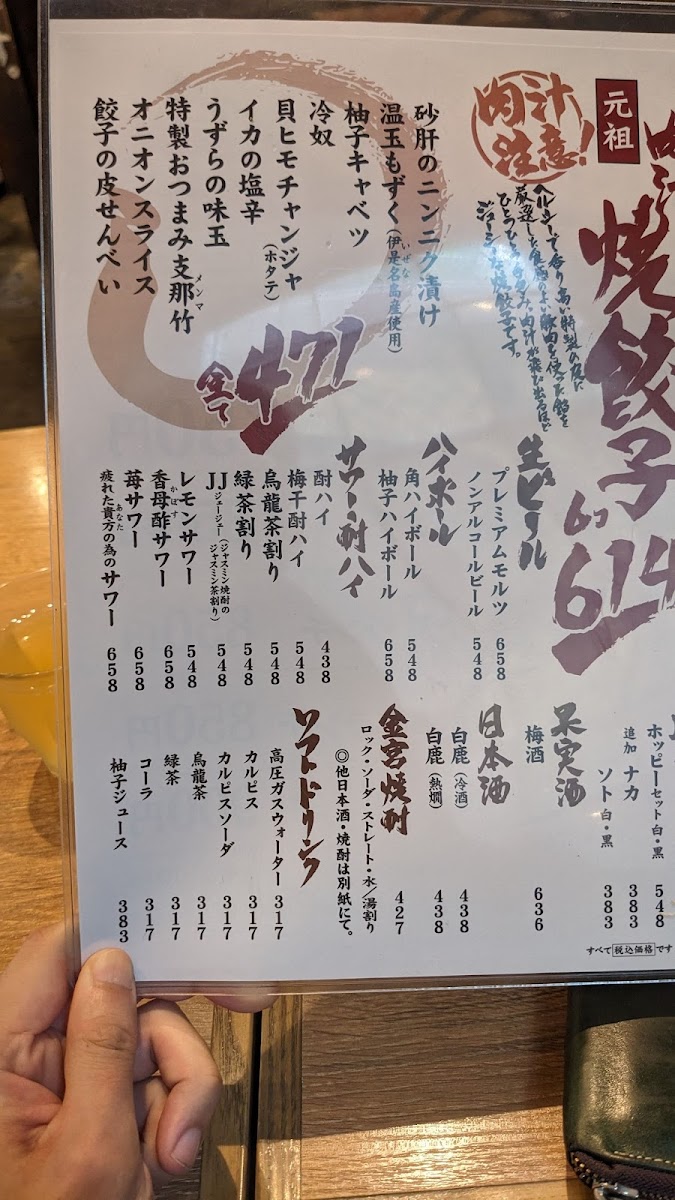 元祖
焼餃子
6コ
614
肉汁
注意!
ヘルシーで香り高い特製の皮に
厳選した食感のよい豚肉を使った餡を
ひとつひとつ包み、肉汁が飛び出るほど
ジューシーな焼餃子です。
砂肝のニンニク漬け
温玉もずく(伊是名島産使用)
いぜな
柚子キャベツ
冷奴
貝ヒモチャンジャ
(ホタテ)
イカの塩辛
うずらの味玉
特製おつまみ支那竹
メンマ
オニオンスライス
餃子の皮せんべい
全て
471
生ビール
プレミアムモルツ 658
ノンアルコールビール 548
ハイボール
角ハイボール 548
柚子ハイボール 658
サワー・酎ハイ
酎ハイ 438
梅干酎ハイ 548
烏龍茶割り 548
緑茶割り 548
JJ(ジャスミン焼酎のジャスミン茶割り) 548
ジェージェー
レモンサワー 548
香母酢サワー 658
かぼす
苺サワー 658
疲れた貴方の為のサワー 658
あなた
ホッピーセット 白・黒 548
追加 ナカ 383
ソト 白・黒 383
果実酒
梅酒 636
日本酒
白鹿(冷酒) 438
白鹿(熱燗) 438
金宮焼酎 427
ロック・ソーダ・ストレート・水/湯割り
◎他日本酒・焼酎は別紙にて。
ソフトドリンク
高圧ガスウォーター 317
カルピス 317
カルピスソーダ 317
烏龍茶 317
緑茶 317
コーラ 317
柚子ジュース 383
すべて税込価格です